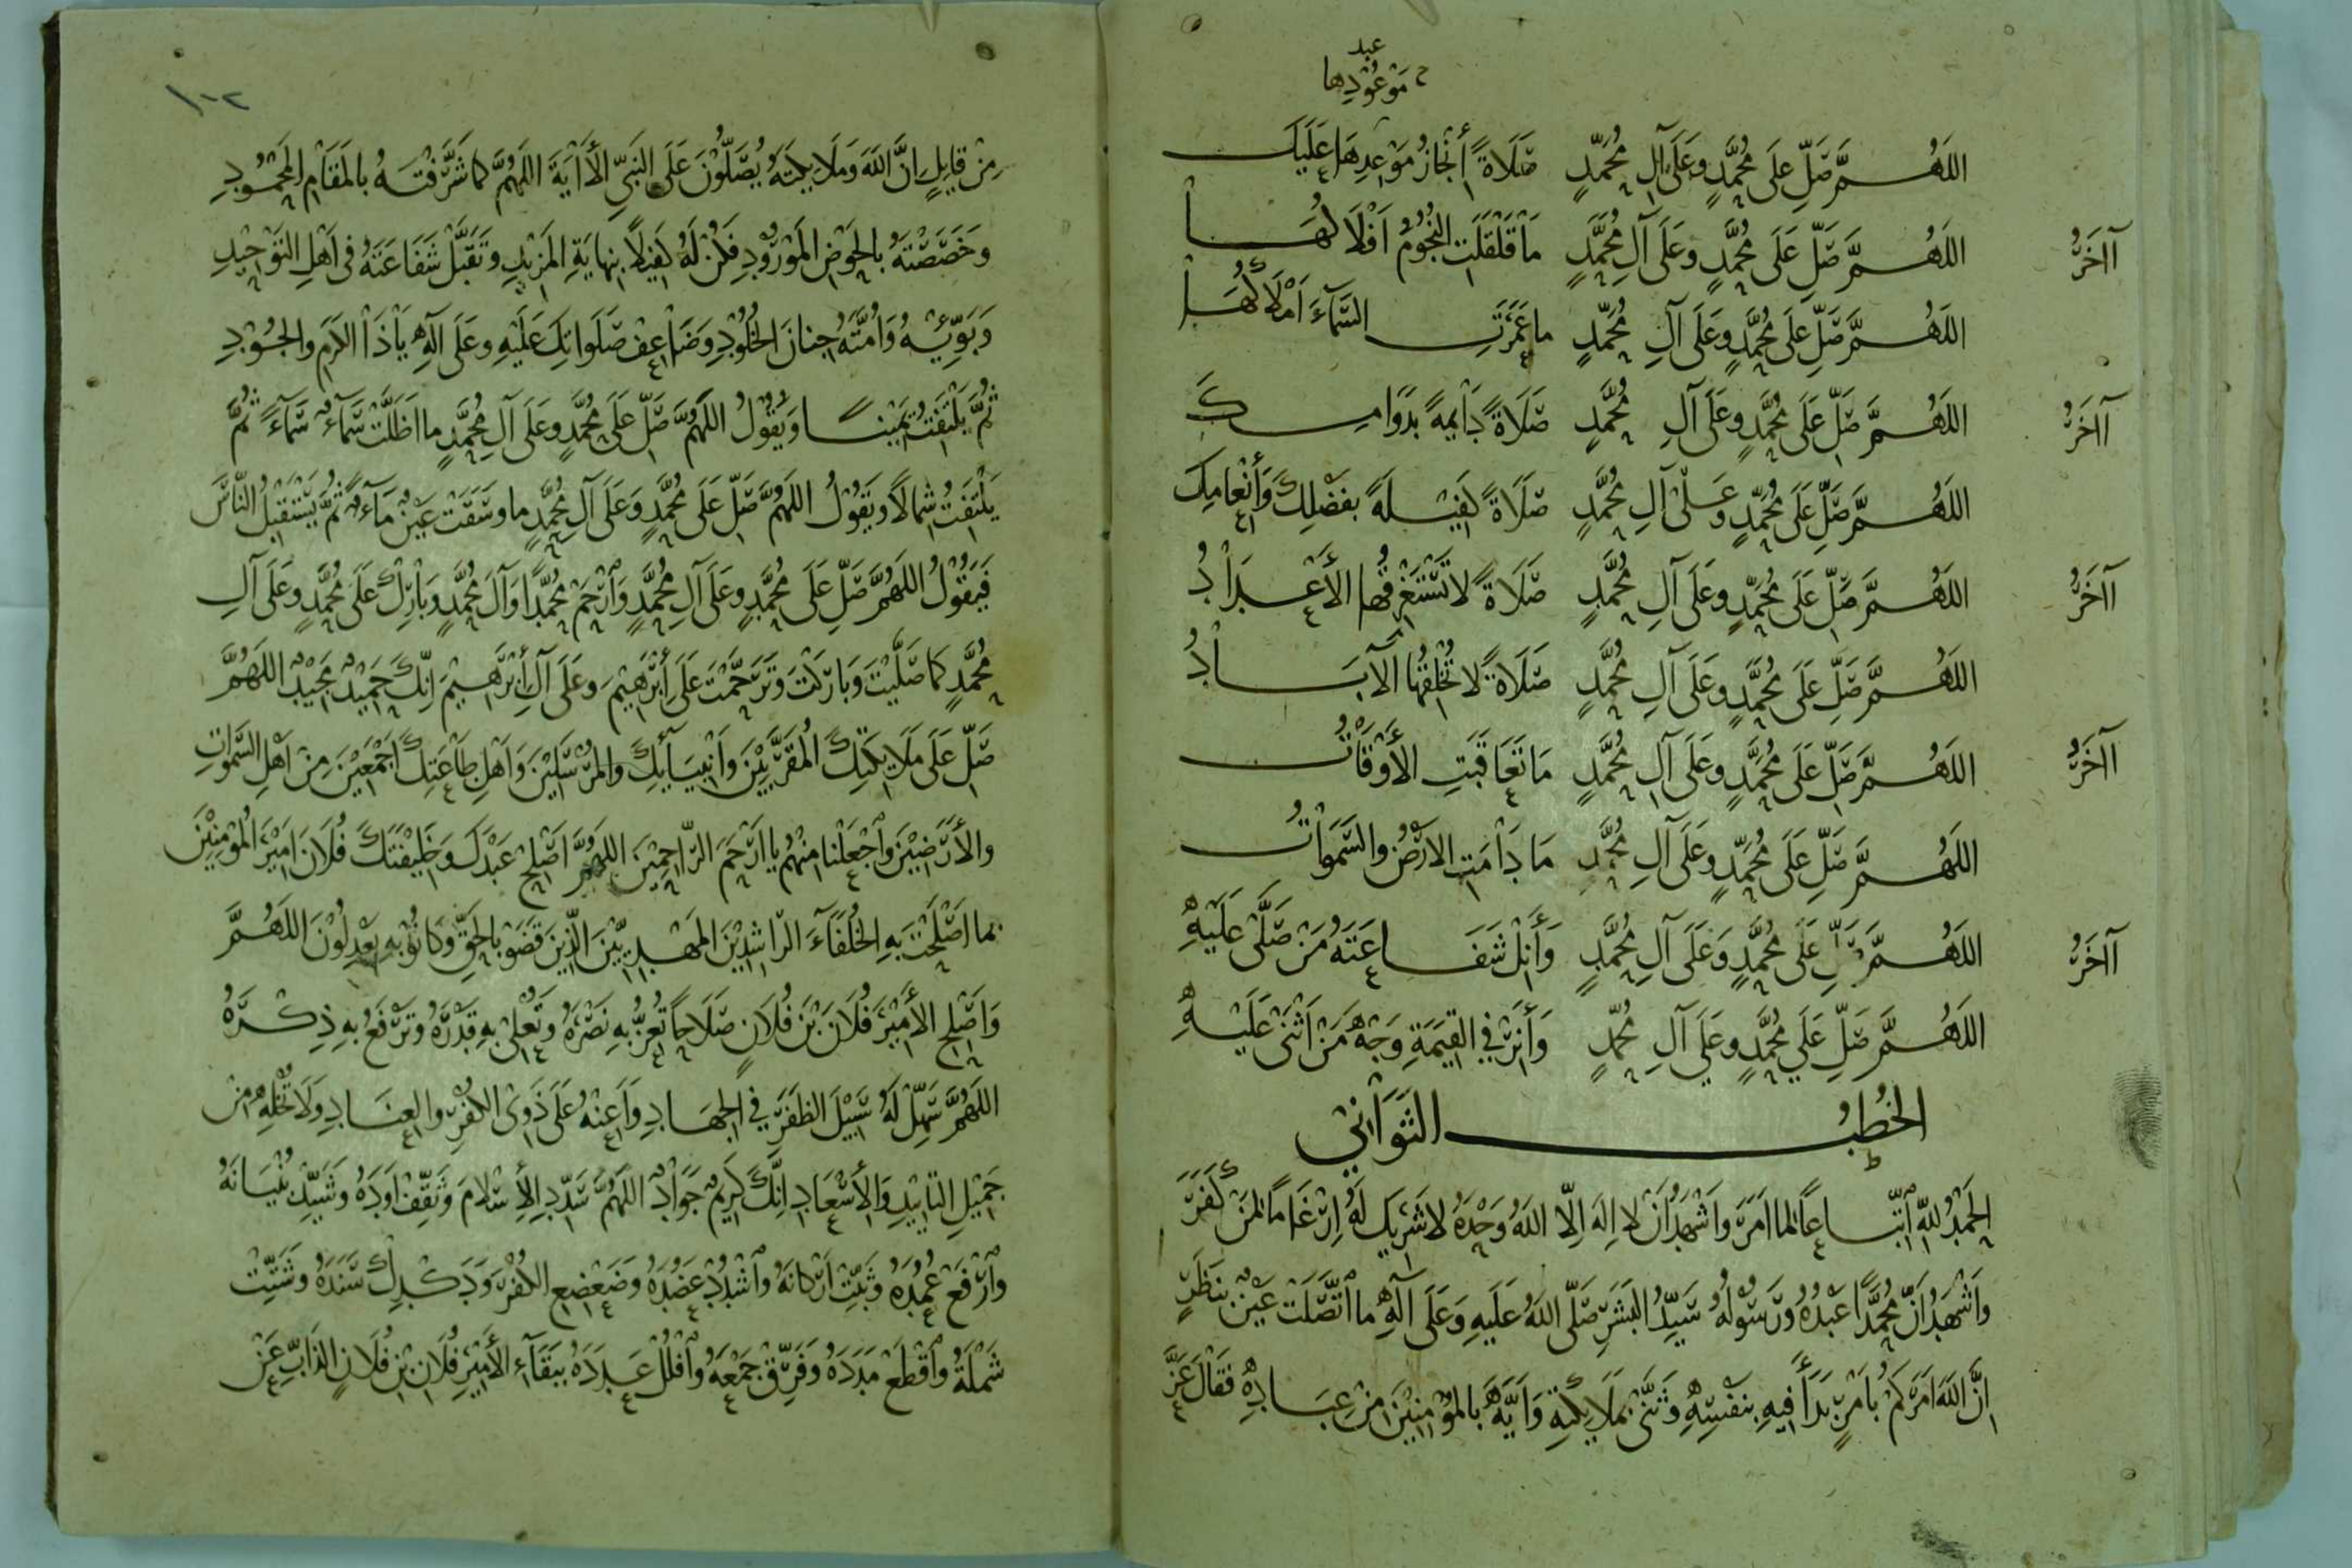 عبد
موعودها
اللهم صل على محمد وعلى آل محمد صلاة انجاز موعدها عليك
آاخر اللهم صل على محمد وعلى آل محمد ما قلقلت النجوم افلاكها
اللهم صل على محمد وعلى آل محمد ما عمرت السمآء املاكها
آاخر اللهم صل على محمد وعلى آل محمد صلاة دايمة بدوامك
اللهم صل على محمد وعلى آل محمد صلاة كفيلة بفضلك وأنعامك
آاخر اللهم صل على محمد وعلى آل محمد صلاة لا تستغرقها الأعداد
اللهم صل على محمد وعلى آل محمد صلاة لا تخلقها الآباد
آاخر اللهم صل على محمد وعلى آل محمد ما تعاقبت الأوقات
اللهم صل على محمد وعلى آل محمد ما دامت الارض والسموات
آاخر اللهم صل على محمد وعلى آل محمد وأنل شفاعته من صلى عليه
اللهم صل على محمد وعلى آل محمد وأنر في القيمة وجه من اثنى عليه
الخطب الثواني
الحمد لله اتباعا لما امر واشهد ان لا اله الا الله وحده لا شريك له ارغاما لمن كفر
واشهد ان محمدا عبده ورسوله سيد البشر صلى الله عليه وعلى آله ما اتصلت عين بنظر
ان الله امركم بامر بدأ فيه بنفسه وثنى بملايكته وايه بالمؤمنين من عباده فقال عز
١٠٢
من قايل ان الله وملايكته يصلون على النبي الأاية اللهم كما شرفته بالمقام المحمود
وخصصته بالحوض المورود فكن له كفيلا بنهاية المزيد وتقبل شفاعته فى اهل التوحيد
وبويه وامته جنان الخلود وضاعف صلواتك عليه وعلى آله ياذا الكرم والجود
ثم يلتفت يمينا ويقول اللهم صل على محمد وعلى آل محمد ما اظلت سمآء سمآء ثم
يلتفت شمالا ويقول اللهم صل على محمد وعلى آل محمد ما وسقت عين مآء ثم يستقبل الناس
فيقول اللهم صل على محمد وعلى آل محمد وارحم محمدا وآل محمد وبارك على محمد وعلى آل
محمد كما صليت وباركت وترحمت على أبرهيم وعلى آل أبرهيم انك حميد مجيد اللهم
صل على ملايكتك المقربين وانبيايك والمرسلين واهل طاعتك اجمعين من اهل السموات
والأرضين واجعلنا منهم يا ارحم الراحمين اللهم اصلح عبدك وخليفتك فلان امير المؤمنين
بما اصلحت به الخلفآء الراشدين المهديين الذين قضو بالحق وكانو به يعدلون اللهم
واصلح الأمير فلان بن فلان صلاحا تعز به نصره وتعلى به قدره وترفع به ذكره
اللهم سهل له سبيل الظفر في الجهاد واعنه على ذوى الكفر والعناد ولا تخله من
جميل التاييد والأسعاد انك كريم جواد اللهم سدد الأسلام وثقف اوده وشيد بنيانه
وارفع عمده وثبت اركانه واشدد عضده وضعضع الكفر ودكدك سنده وشتت
شمله واقطع مدده وفرق جمعه وافلل عدده ببقآء الأمير فلان بن فلان الذاب عن